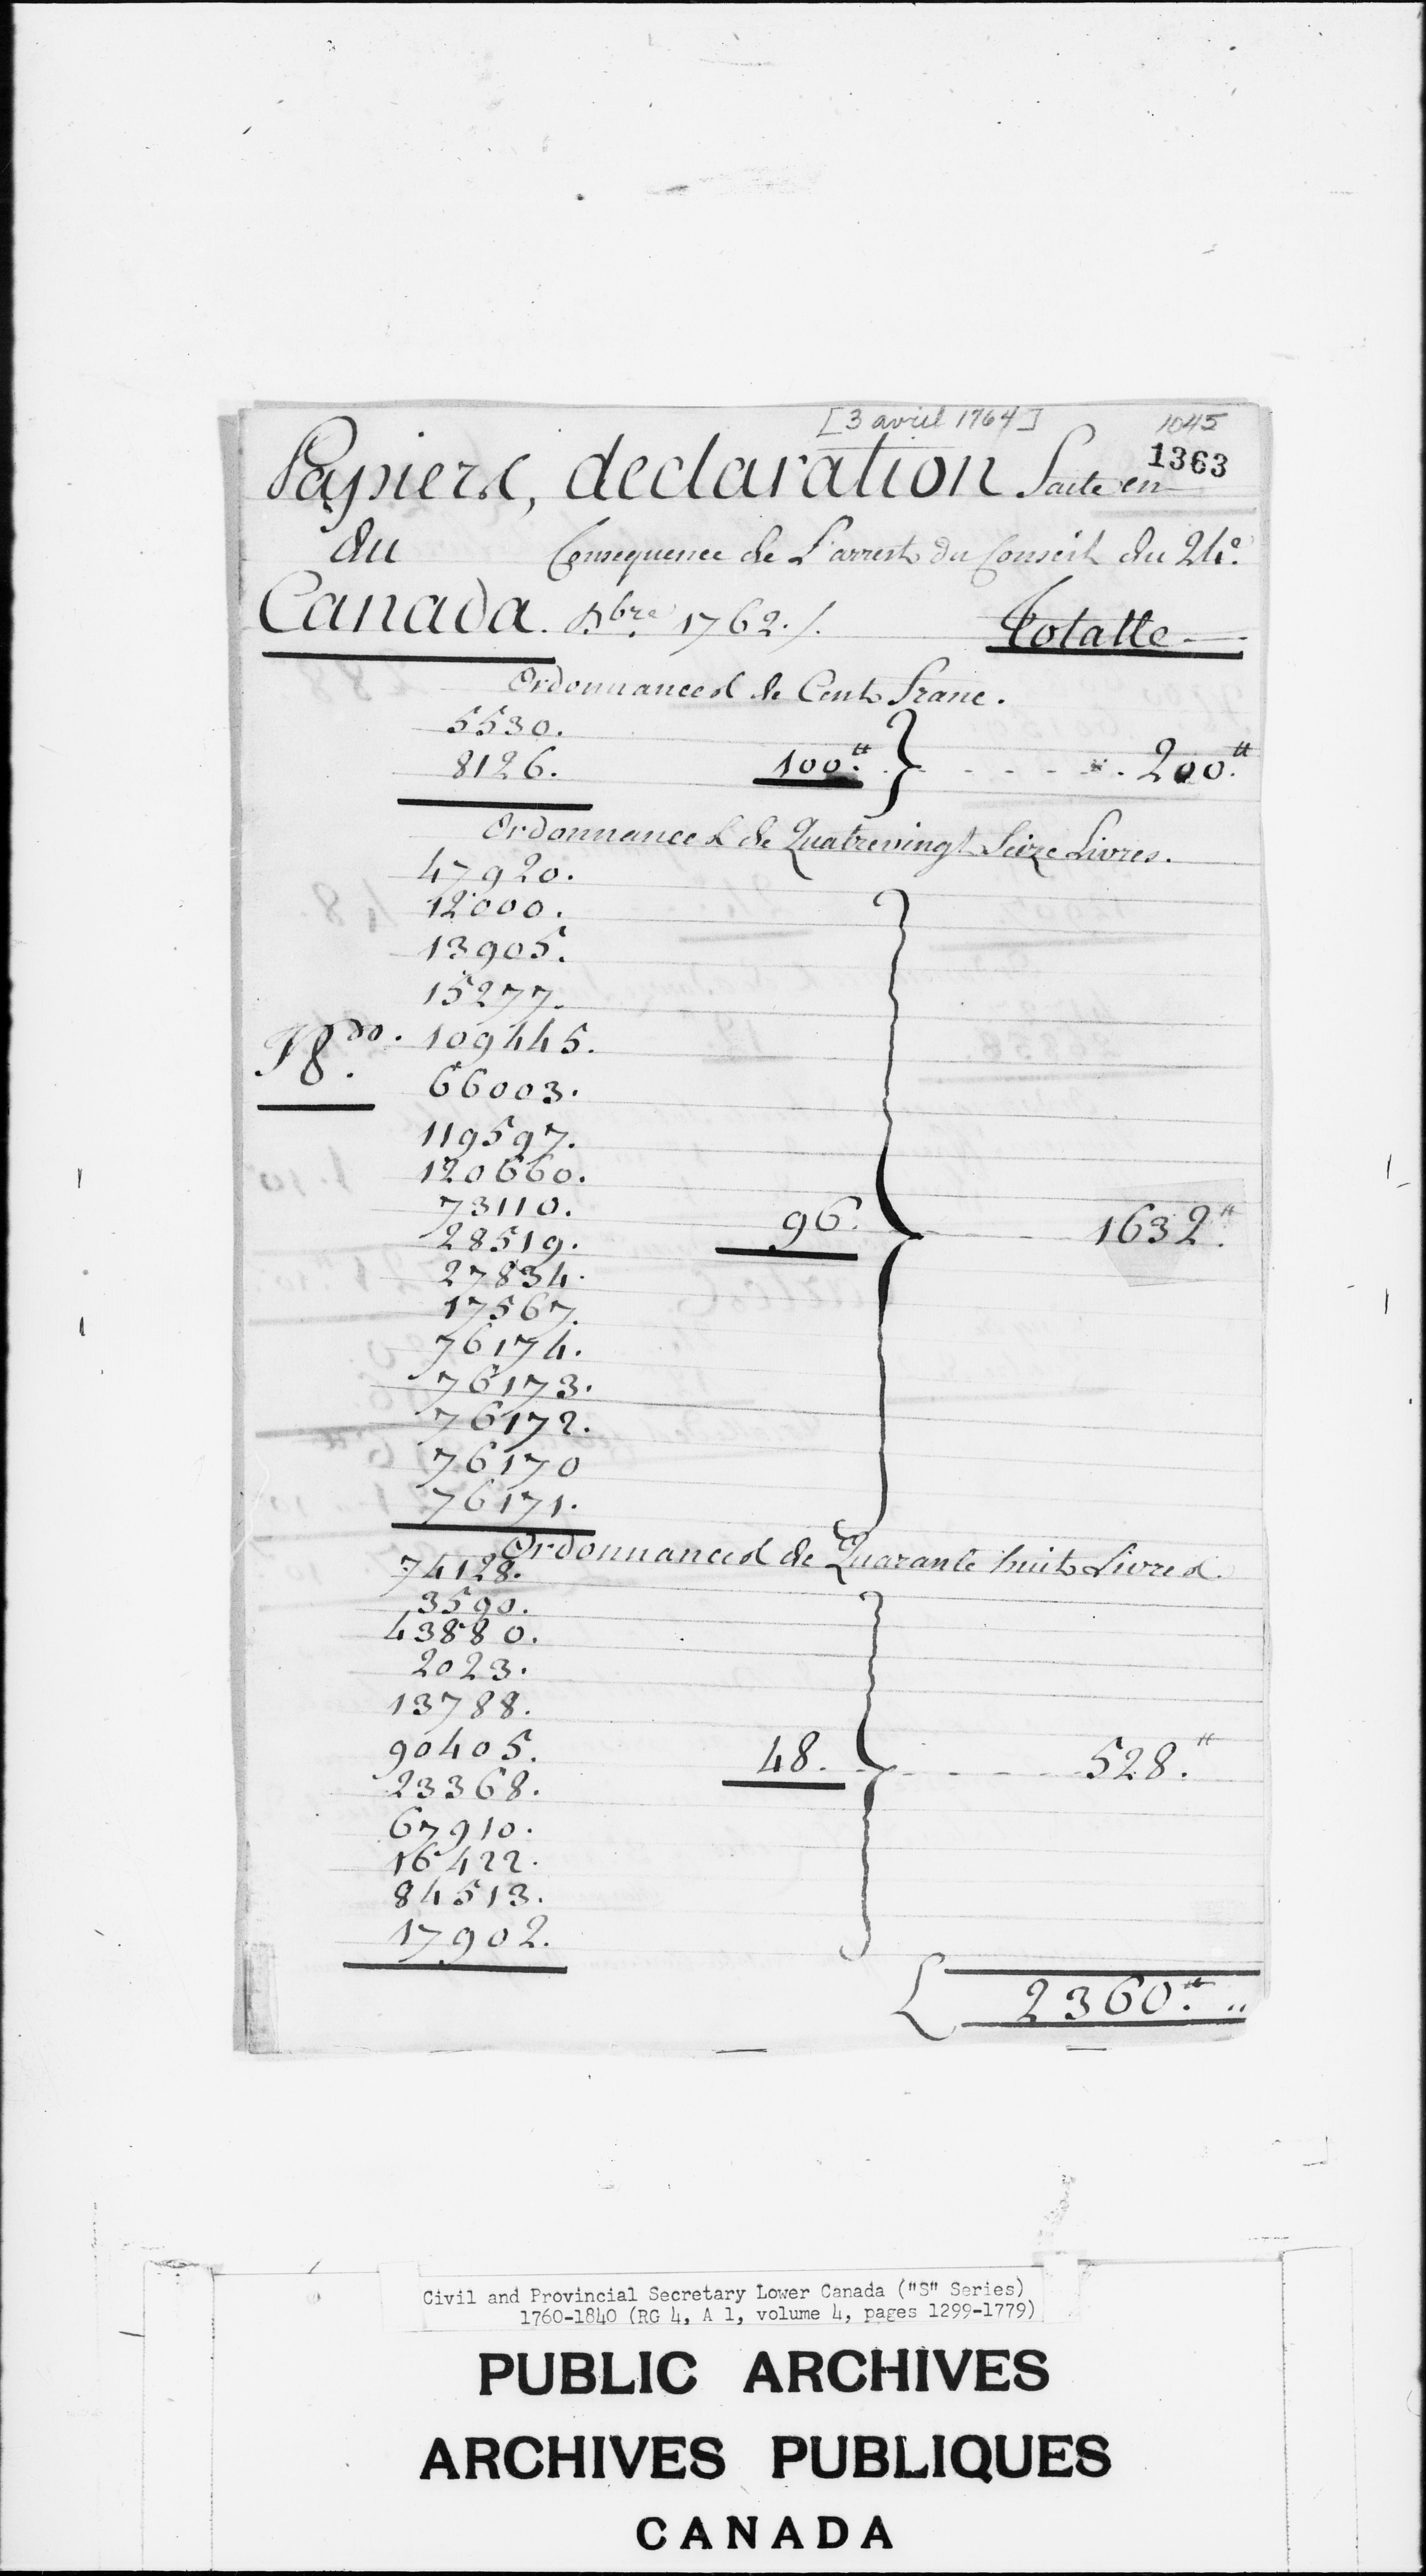 [3 avril 1764] 1045
1363
Papiers, declaration faite en
du Consequence de L'arrest du Conseil du 24e
Canada. Xbre 1762. /. Totalle
Ordonnances de Cent franc.
5530.
8126. 100.tt 200.tt
Ordonnances de Quatrevingt Seize Livres.
47920.
12000.
13905.
15277.
109445.
66003.
119597.
120660.
73110.
28519. 96. 1632.tt
27834.
17567.
76174.
76173.
76172.
76170
76171.
Ordonnances de Quarante huit Livres.
74128.
3590.
43880.
2023.
13788.
90405. 48. 528.tt
23368.
67910.
16422.
84513.
17902.
L 2360.tt ..
Civil and Provincial Secretary Lower Canada ("S" Series)
1760-1840 (RG 4, A 1, volume 4, pages 1299-1779)
PUBLIC ARCHIVES
ARCHIVES PUBLIQUES
CANADA